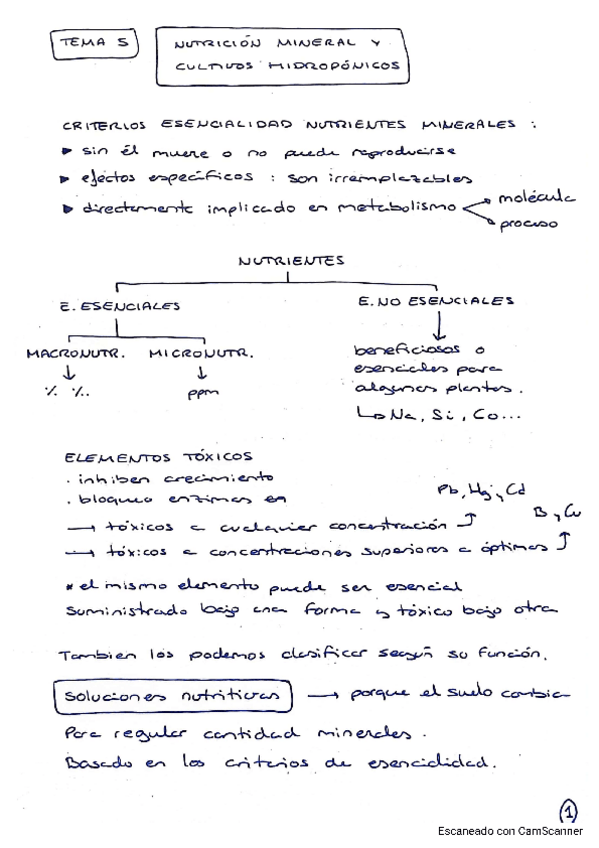 TEMA 5
NUTRICIÓN MINERAL Y
CULTIVOS HIDROPÓNICOS
CRITERIOS ESENCIALIDAD NUTRIENTES MINERALES :
▶ sin él muere o no puede reproducirse
▶ efectos específicos : son irremplazables
▶ directamente implicado en metabolismo
molécula
proceso
NUTRIENTES
E. ESENCIALES
E. NO ESENCIALES
MACRONUTR. MICRONUTR.
↓ ↓
% %.. ppm
beneficiosos o
esenciales para
algunas plantas.
↳ Na, Si, Co...
ELEMENTOS TÓXICOS
. inhiben crecimiento
. bloqueo enzimas en
Pb, Hg, Cd
→ tóxicos a cualquier concentración
B y Cu
→ tóxicos a concentraciones superiores a óptimas
* el mismo elemento puede ser esencial
suministrado bajo una forma y tóxico bajo otra
Tambien los podemos clasificar según su función.
soluciones nutritivas → porque el suelo cambia
Para regular cantidad minerales.
Basado en los criterios de esencialidad.
1
Escaneado con CamScanner